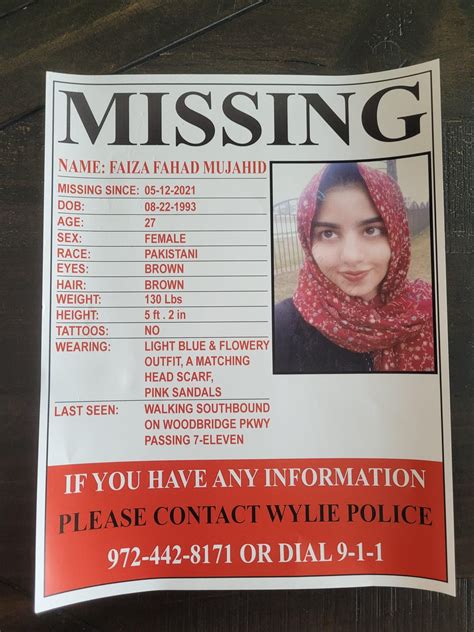 MISSING
NAME: FAIZA FAHAD MUJAHID
MISSING SINCE: 05-12-2021
DOB: 08-22-1993
AGE: 27
SEX: FEMALE
RACE: PAKISTANI
EYES: BROWN
HAIR: BROWN
WEIGHT: 130 Lbs
HEIGHT: 5 ft . 2 in
TATTOOS: NO
WEARING: LIGHT BLUE & FLOWERY
OUTFIT, A MATCHING
HEAD SCARF,
PINK SANDALS
LAST SEEN: WALKING SOUTHBOUND
ON WOODBRIDGE PKWY
PASSING 7-ELEVEN
IF YOU HAVE ANY INFORMATION
PLEASE CONTACT WYLIE POLICE
972-442-8171 OR DIAL 9-1-1